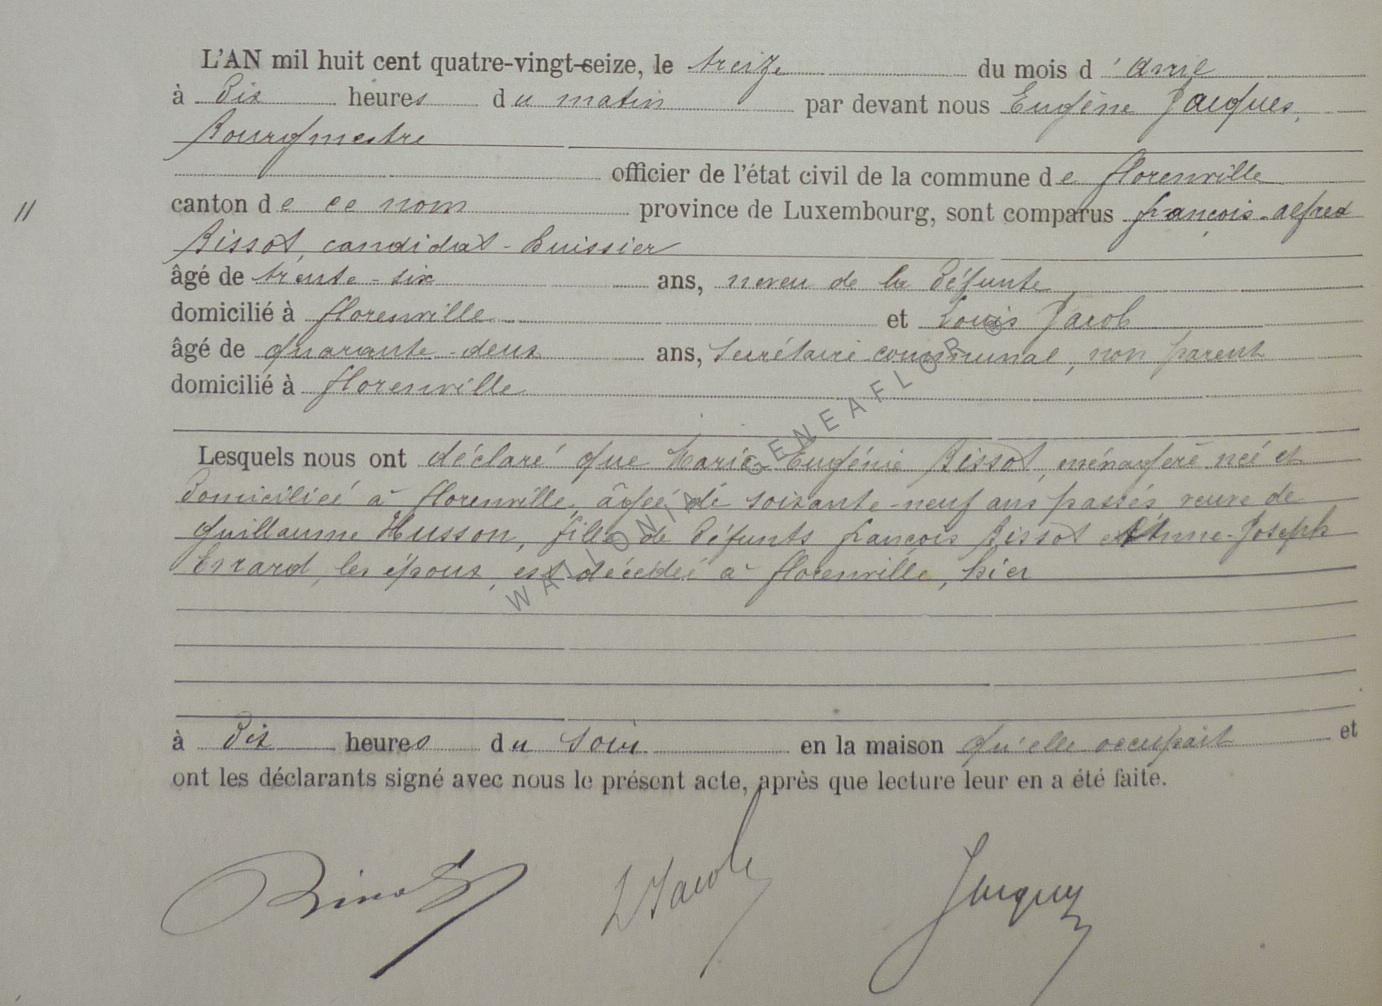 L'AN mil huit cent quatre-vingt-seize, le treize du mois d'avril
à Dix heures du matin par devant nous Eugène Jacques,
Bourgmestre
officier de l'état civil de la commune de florenville
11
canton de ce nom province de Luxembourg, sont comparus françois-alfred
Bissot, candidat-huissier
âgé de trente-six ans, neveu de la Défunte
domicilié à florenville et Louis Jacob
âgé de quarante-deux ans, Secrétaire communal, non parent
domicilié à florenville
Lesquels nous ont déclaré que Marie Eugénie Bissot, ménagère née et
Domiciliée à florenville, âgée de soixante-neuf ans passés, veuve de
Guillaume Husson, fille de Défunts françois Bissot et Anne-Joseph
Evrard, les époux, est décédée à florenville, hier
à Dix heures du soir en la maison qu'elle occupait et
ont les déclarants signé avec nous le présent acte, après que lecture leur en a été faite.
L Jacob Jacques
WALLONIA GENEAFLOR ©